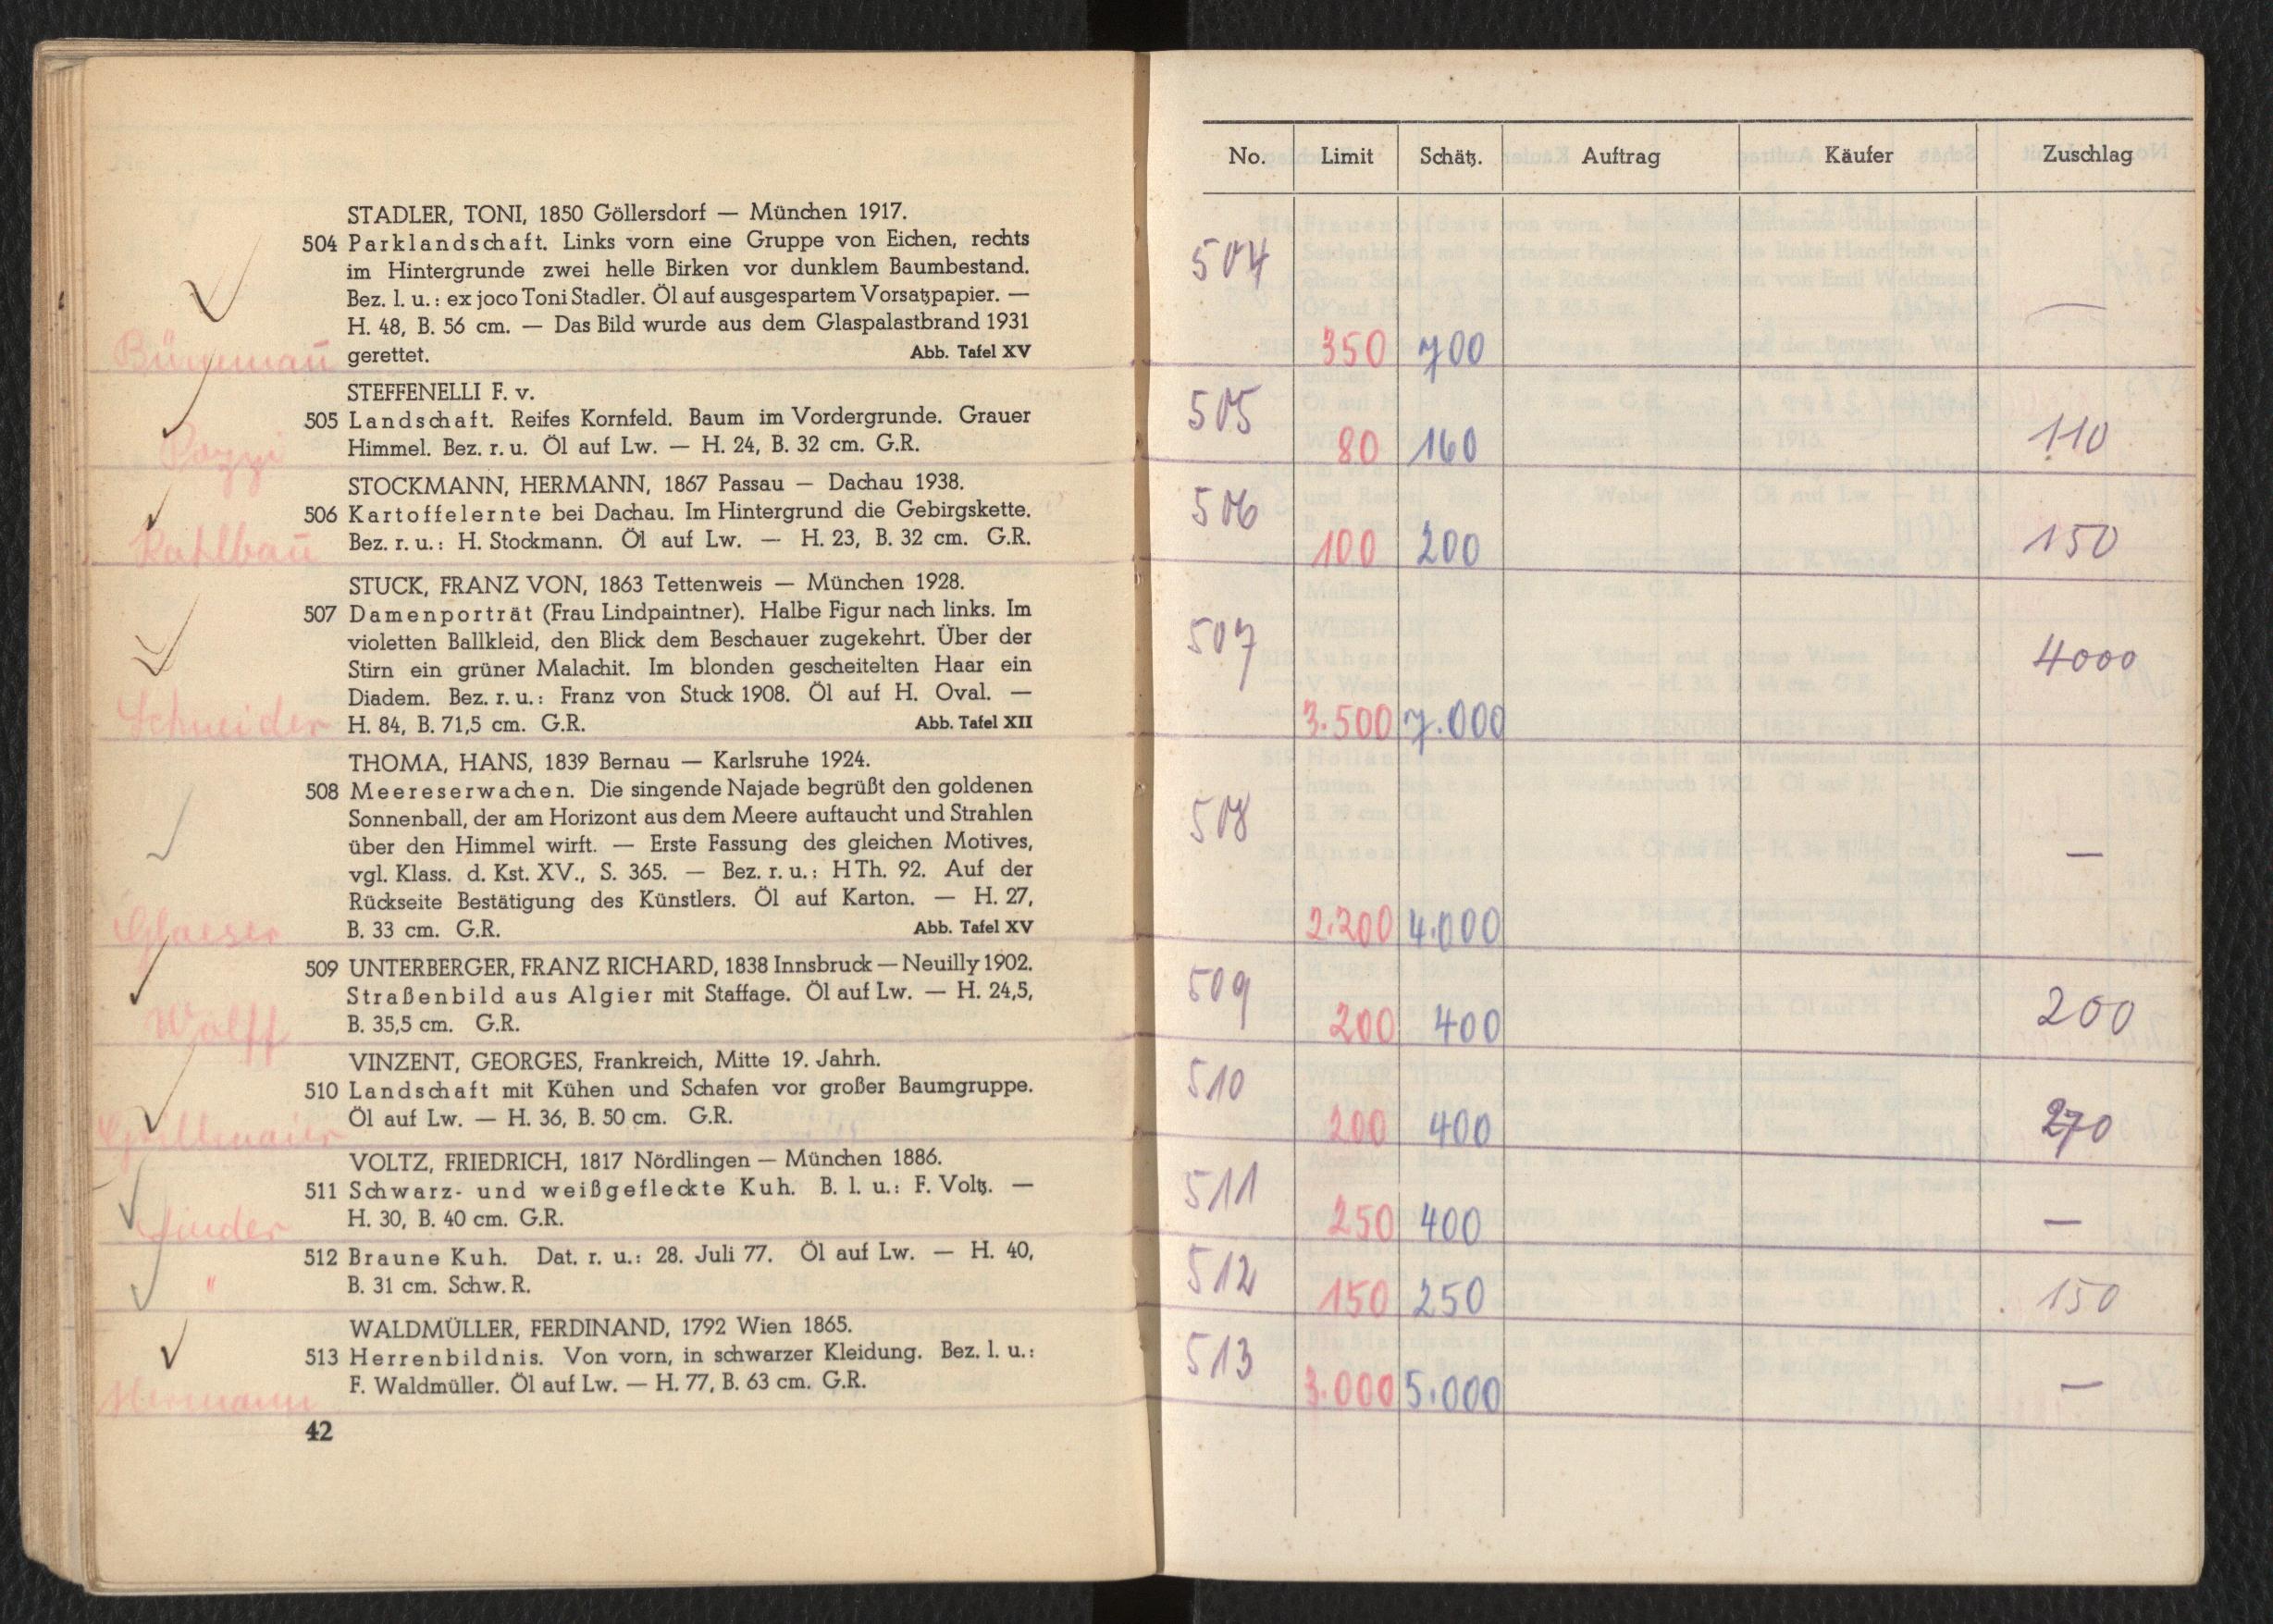 STADLER, TONI, 1850 Göllersdorf — München 1917.
504 Parklandschaft. Links vorn eine Gruppe von Eichen, rechts
im Hintergrunde zwei helle Birken vor dunklem Baumbestand.
Bez. l. u.: ex joco Toni Stadler. Öl auf ausgespartem Vorsatzpapier. —
H. 48, B. 56 cm. — Das Bild wurde aus dem Glaspalastbrand 1931
gerettet. Abb. Tafel XV
STEFFENELLI F. v.
505 Landschaft. Reifes Kornfeld. Baum im Vordergrunde. Grauer
Himmel. Bez. r. u. Öl auf Lw. — H. 24, B. 32 cm. G.R.
STOCKMANN, HERMANN, 1867 Passau — Dachau 1938.
506 Kartoffelernte bei Dachau. Im Hintergrund die Gebirgskette.
Kahlbau̅ Bez. r. u.: H. Stockmann. Öl auf Lw. — H. 23, B. 32 cm. G.R.
STUCK, FRANZ VON, 1863 Tettenweis — München 1928.
507 Damenporträt (Frau Lindpaintner). Halbe Figur nach links. Im
violetten Ballkleid, den Blick dem Beschauer zugekehrt. Über der
Stirn ein grüner Malachit. Im blonden gescheitelten Haar ein
Diadem. Bez. r. u.: Franz von Stuck 1908. Öl auf H. Oval. —
Schneider H. 84, B. 71,5 cm. G.R. Abb. Tafel XII
THOMA, HANS, 1839 Bernau — Karlsruhe 1924.
508 Meereserwachen. Die singende Najade begrüßt den goldenen
Sonnenball, der am Horizont aus dem Meere auftaucht und Strahlen
über den Himmel wirft. — Erste Fassung des gleichen Motives,
vgl. Klass. d. Kst. XV., S. 365. — Bez. r. u.: H Th. 92. Auf der
Rückseite Bestätigung des Künstlers. Öl auf Karton. — H. 27,
Glaeser B. 33 cm. G.R. Abb. Tafel XV
509 UNTERBERGER, FRANZ RICHARD, 1838 Innsbruck — Neuilly 1902.
Straßenbild aus Algier mit Staffage. Öl auf Lw. — H. 24,5,
Wolff B. 35,5 cm. G.R.
VINZENT, GEORGES, Frankreich, Mitte 19. Jahrh.
510 Landschaft mit Kühen und Schafen vor großer Baumgruppe.
Öl auf Lw. — H. 36, B. 50 cm. G.R.
VOLTZ, FRIEDRICH, 1817 Nördlingen — München 1886.
511 Schwarz- und weißgefleckte Kuh. B. l. u.: F. Voltz. —
H. 30, B. 40 cm. G.R.
512 Braune Kuh. Dat. r. u.: 28. Juli 77. Öl auf Lw. — H. 40,
" B. 31 cm. Schw. R.
WALDMÜLLER, FERDINAND, 1792 Wien 1865.
513 Herrenbildnis. Von vorn, in schwarzer Kleidung. Bez. l. u.:
Hermann F. Waldmüller. Öl auf Lw. — H. 77, B. 63 cm. G.R.
42
No. Limit Schätz. Auftrag Käufer Zuschlag
504 350 700 —
505 80 160 110
506 100 200 150
507 3.500 7.000 4000
508 2.200 4.000 —
509 200 400 200
510 200 400 270
511 250 400 —
512 150 250 150
513 3.000 5.000 —